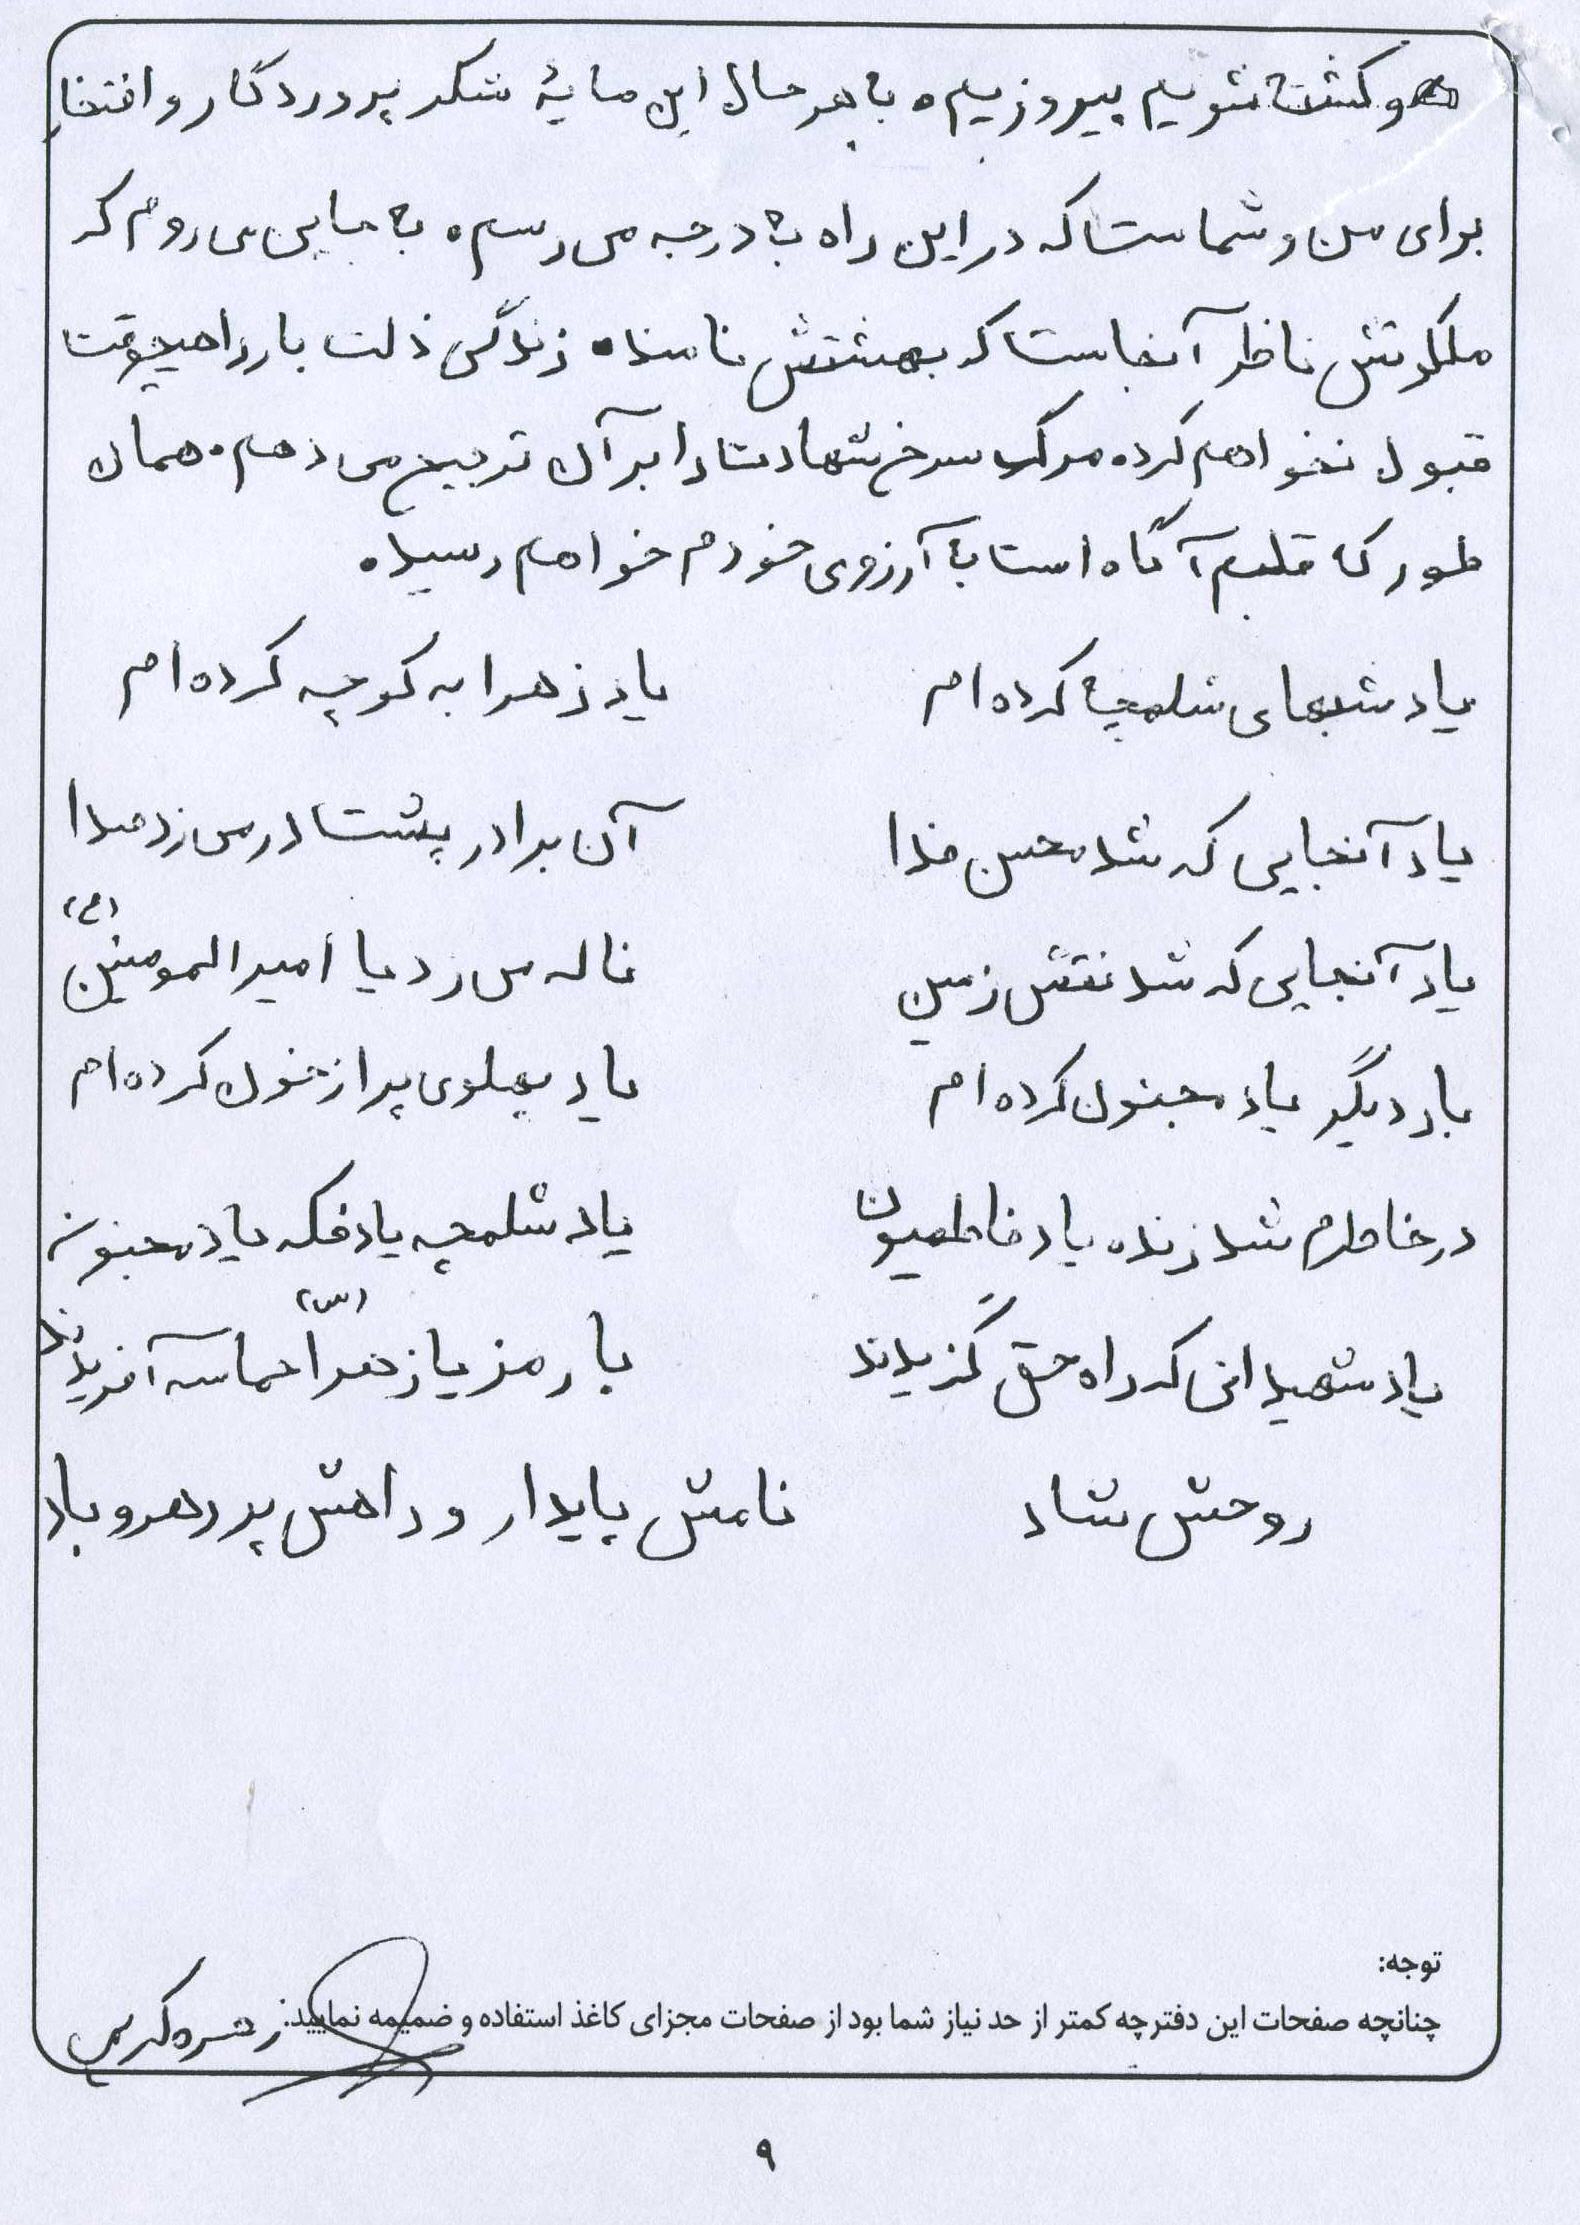 و کشته شویم پیروزیم. به هر حال این مایهٔ شکر پروردگار و افتخار
برای من و شماست که در این راه به درجه می رسم. به جایی می روم که
ملکوتش ناظر آنجاست که بهشتش نامند. زندگی ذلت بار را هیچوقت
قبول نخواهم کرد. مرگ سرخ شهادت را بر آن ترجیح می دهم. همان
طور که قلبم آگاه است به آرزوی خودم خواهم رسید.
یاد شبهای شلمچه کرده ام یاد زهرا به کوچه کرده ام
یاد آنجایی که شد محسن فدا آن برادر پشت در می زد صدا
یاد آنجایی که شد نقش زمین ناله می زد یا امیرالمومنین (ع)
بار دیگر یاد مجنون کرده ام یاد پهلوی پر از خون کرده ام
در خاطرم شد زنده یاد فاطمیون یاد شلمچه یاد فکه یاد مجنون
یاد شهیدانی که راه حق گزیدند با رمز یا زهرا (س) حماسه آفریدند
روحش شاد نامش پایدار و راهش پر رهرو باد
توجه:
چنانچه صفحات این دفترچه کمتر از حد نیاز شما بود از صفحات مجزای کاغذ استفاده و ضمیمه نمایید.
زهره کریمی
۹